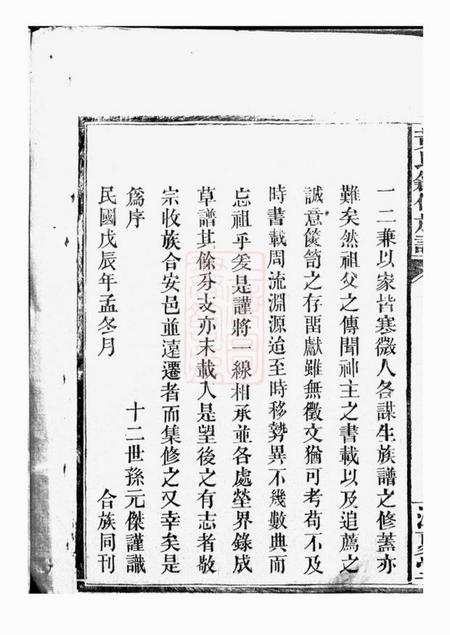 一二兼以家皆寒微人各謀生族譜之修蓋亦
難矣然祖父之傳聞神主之書載以及追薦之
誠意篋笥之存畱獻雖無徵文猶可考苟不及
時書載周流淵源迨至時移勢異不幾數典而
忘祖乎爰是謹將一線相承並各處塋界錄成
草譜其餘分支亦未載入是望後之有志者敬
宗收族合安邑並遠遷者而集修之又幸矣是
爲序
十二世孫元傑謹識
民國戊辰年孟冬月
合族同刊